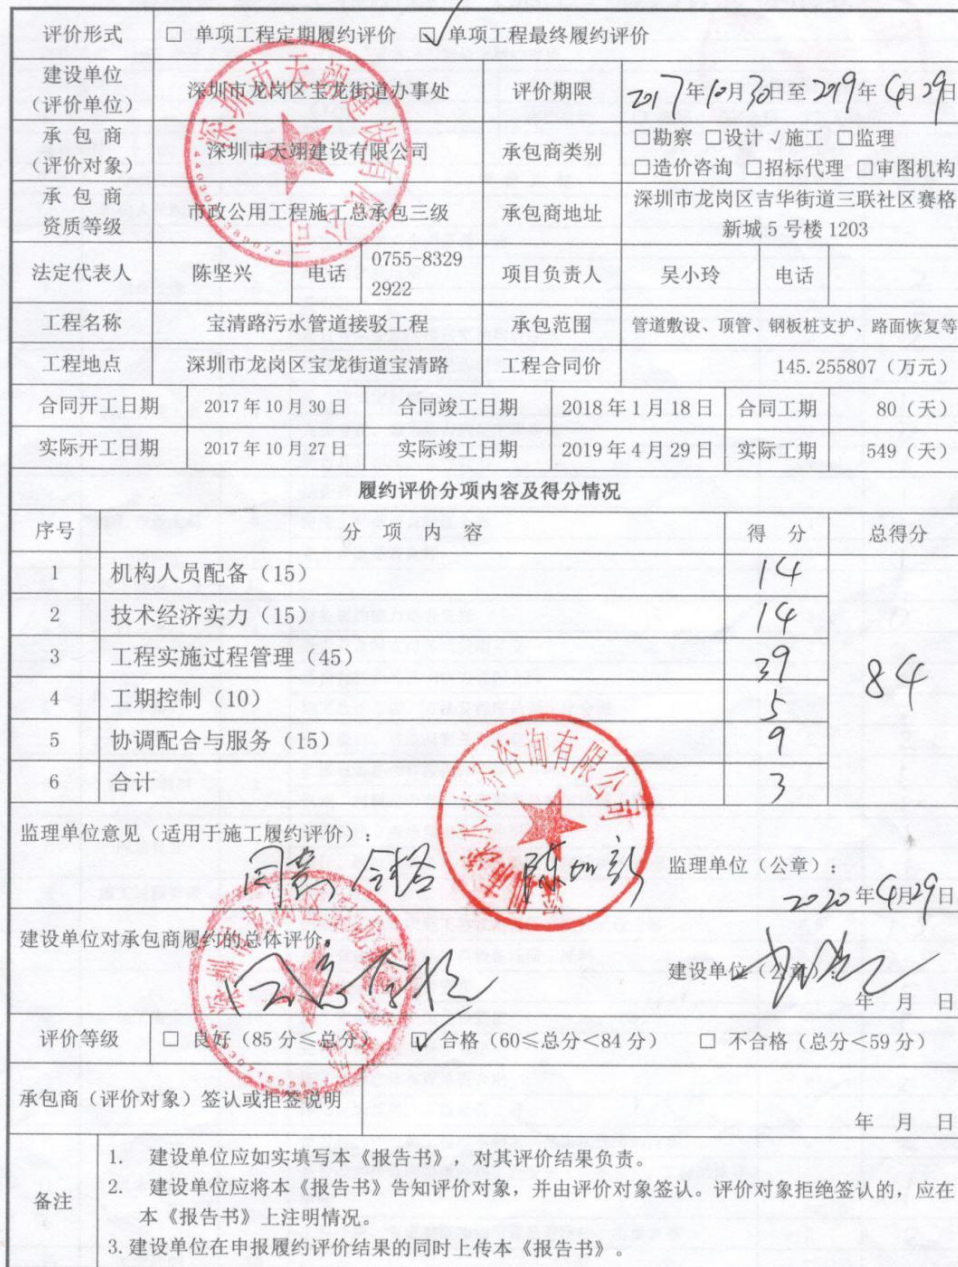 评价形式 □ 单项工程定期履约评价 ☑ 单项工程最终履约评价
建设单位（评价单位） 深圳市龙岗区宝龙街道办事处 评价期限 2017年10月30日至2019年4月29日
承包商（评价对象） 深圳市天翊建设有限公司 承包商类别 □勘察 □设计 √施工 □监理
□造价咨询 □招标代理 □审图机构
承包商资质等级 市政公用工程施工总承包三级 承包商地址 深圳市龙岗区吉华街道三联社区赛格
新城5号楼1203
法定代表人 陈坚兴 电话 0755-8329
2922 项目负责人 吴小玲 电话
工程名称 宝清路污水管道接驳工程 承包范围 管道敷设、顶管、钢板桩支护、路面恢复等
工程地点 深圳市龙岗区宝龙街道宝清路 工程合同价 145.255807（万元）
合同开工日期 2017年10月30日 合同竣工日期 2018年1月18日 合同工期 80（天）
实际开工日期 2017年10月27日 实际竣工日期 2019年4月29日 实际工期 549（天）
履约评价分项内容及得分情况
序号 分项内容 得分 总得分
1 机构人员配备（15） 14
2 技术经济实力（15） 14
3 工程实施过程管理（45） 39 84
4 工期控制（10） 5
5 协调配合与服务（15） 9
6 合计 3
监理单位意见（适用于施工履约评价）：
同意合格 监理单位（公章）：
2020年4月29日
建设单位对承包商履约的总体评价。
建设单位（公章）：
年 月 日
评价等级 □ 良好（85分≤总分） ☑ 合格（60≤总分<84分） □ 不合格（总分<59分）
承包商（评价对象）签认或拒签说明
年 月 日
备注 1. 建设单位应如实填写本《报告书》，对其评价结果负责。
2. 建设单位应将本《报告书》告知评价对象，并由评价对象签认。评价对象拒绝签认的，应在
本《报告书》上注明情况。
3.建设单位在申报履约评价结果的同时上传本《报告书》。